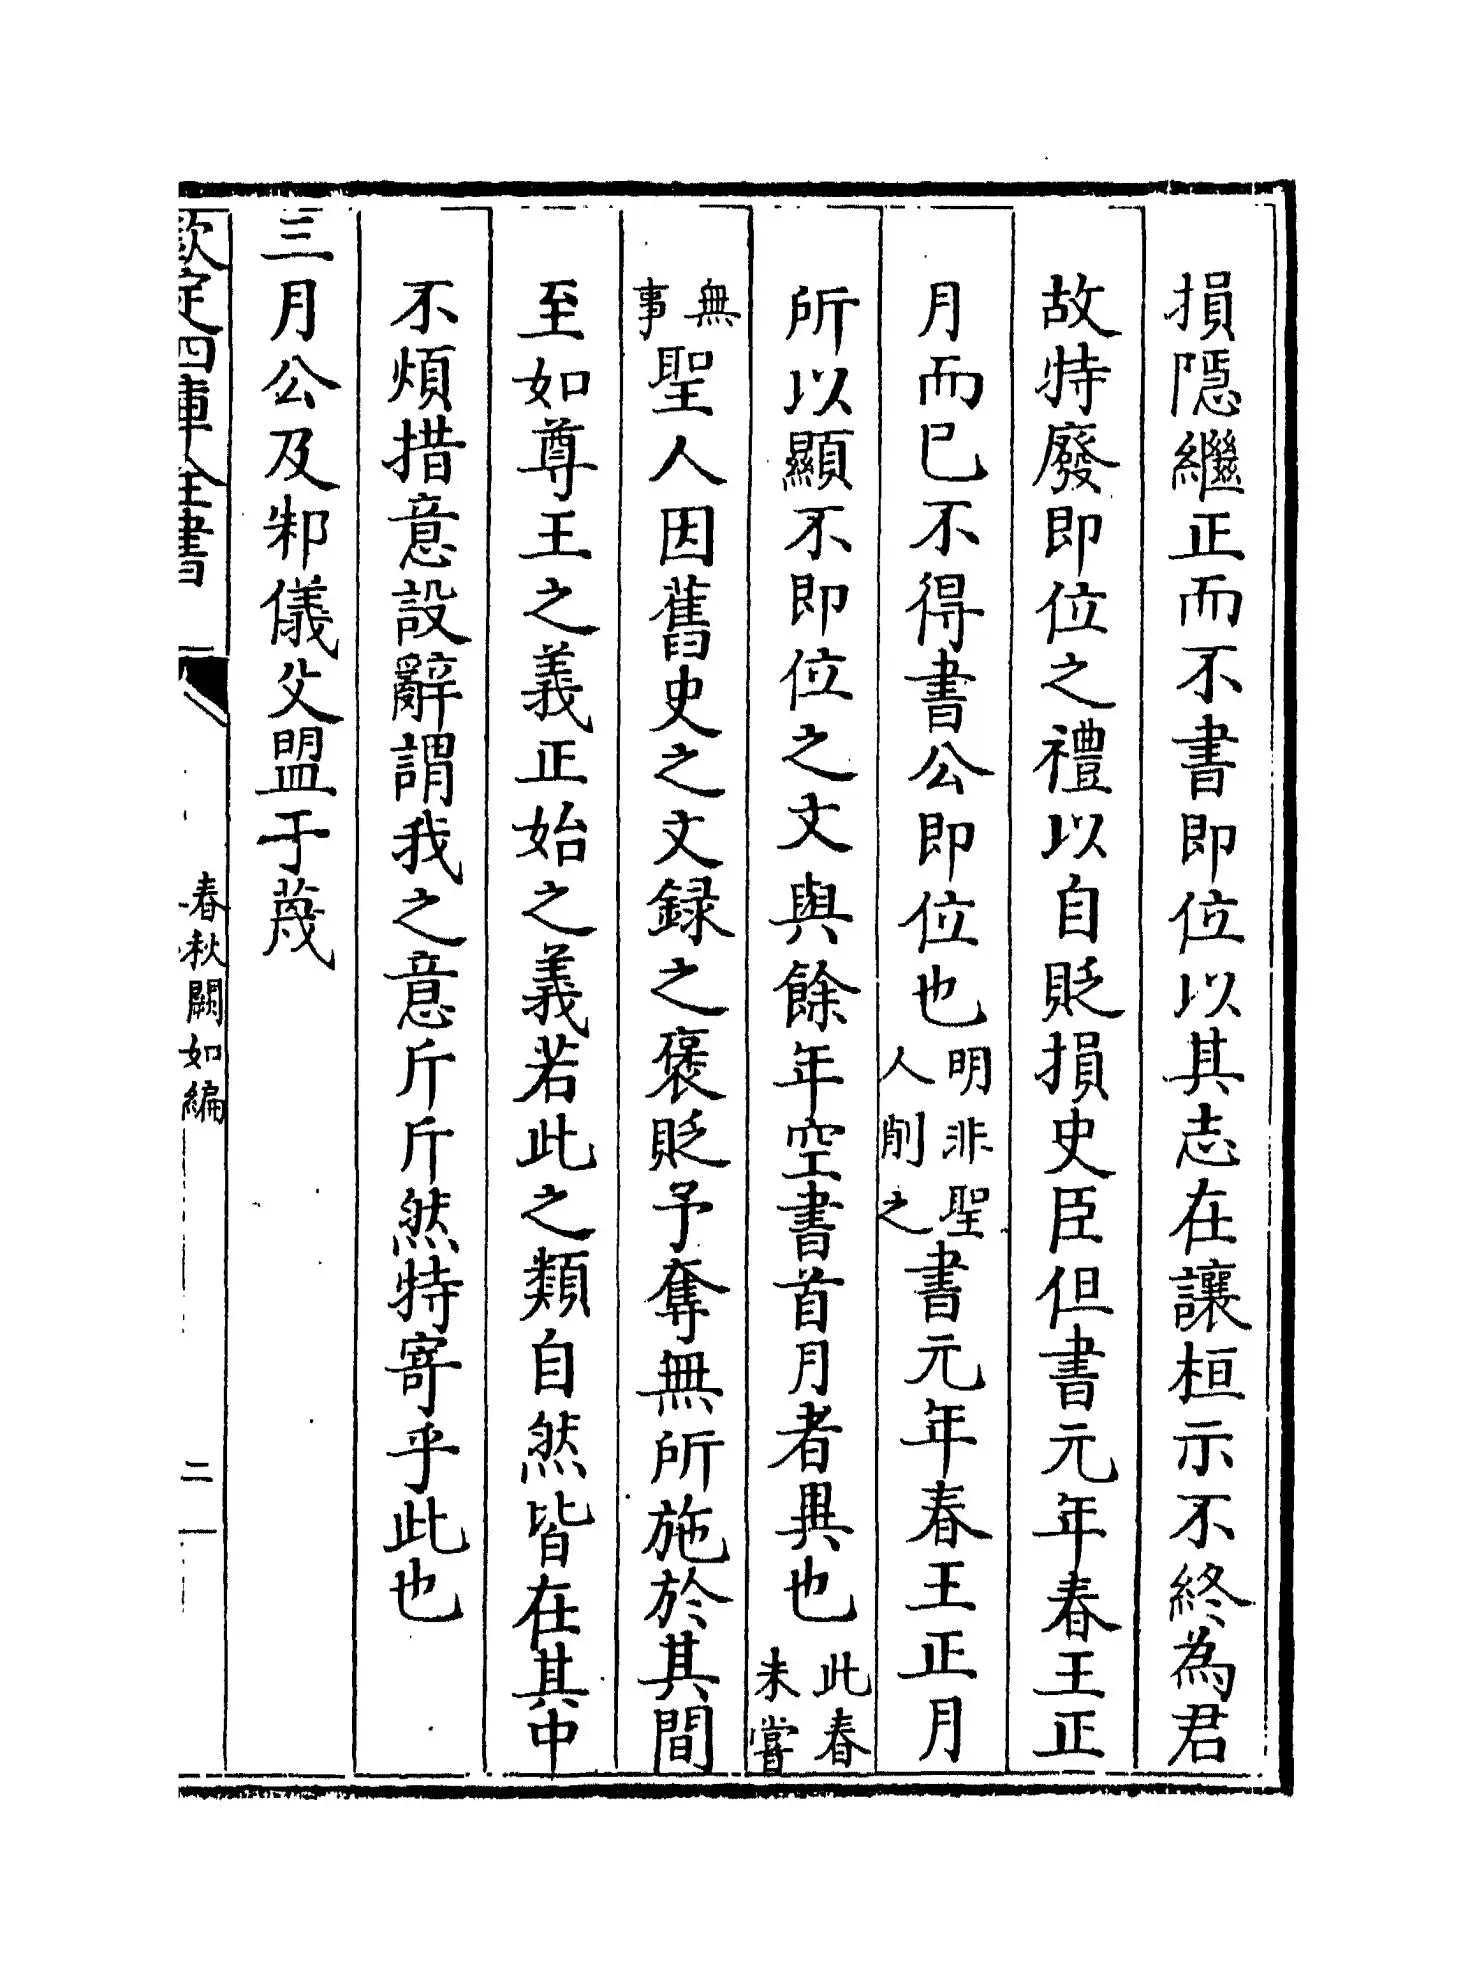 損隱繼正而不書即位以其志在讓桓示不終為君
故特廢即位之禮以自貶損史臣但書元年春王正
月而已不得書公即位也明非聖人削之書元年春王正月
所以顯不即位之文與餘年空書首月者異也此春未嘗
無事聖人因舊史之文録之褒貶予奪無所施於其間
至如尊王之義正始之義若此之類自然皆在其中
不煩措意設辭謂我之意斤斤然特寄乎此也
三月公及邾儀父盟于蔑
欽定四庫全書
春秋闕如編
二